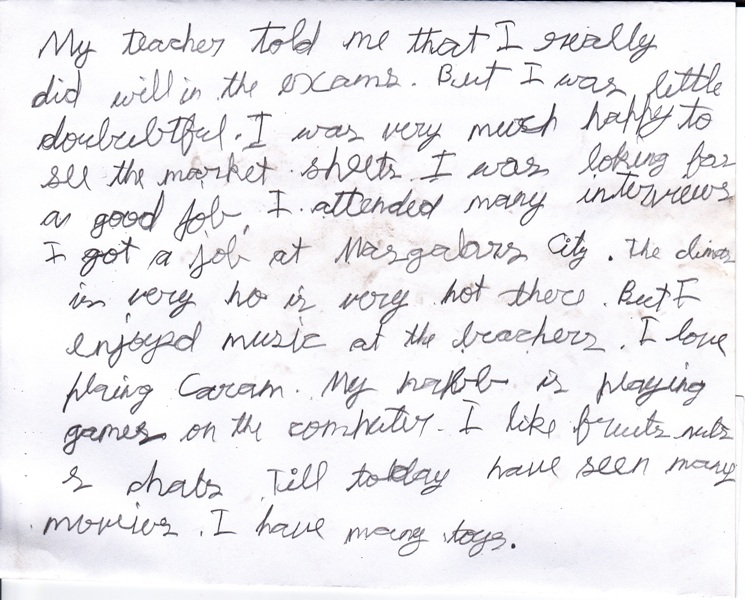 My teacher told me that I really
did will in the exams. But I was little
doububtful. I was very much happy to
see the market sheets. I was loking for
a good job. I attended many interviews
I got a job at City. The
is very ho is very hot there. But I
enjoyed music at the beachers. I love
plaing Caram. My is playing
games on the computer. I like fruits nuts
& chats Till today have seen many
movies. I have many toys.